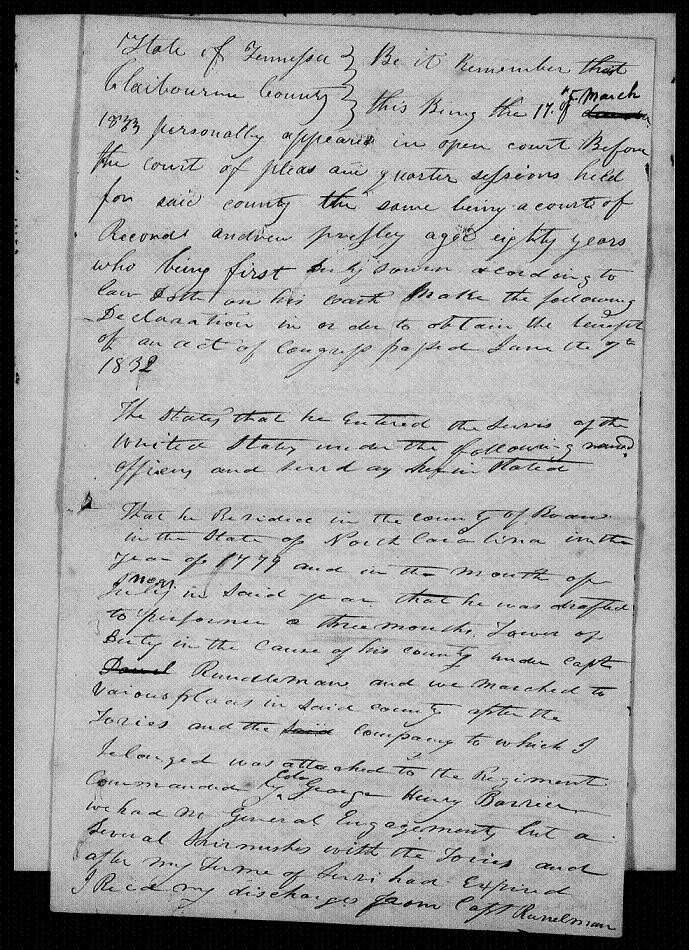 State of Tennessa } Be it Remember that
Claibourne County } this Being the 17th of March
1833 personally appeared in open court Before
the court of pleas and quarter sessions held
for said county the same being a court of
Record andrew presley aged eighty years
who being first duly sworn according to
law Doth on his oath Make the following
Declaration in order to obtain the benefit
of an act of Congress passed June the 7th
1832
The States that he Entered the Servis of the
United States under the following named
officers and servd as herein stated
That he Resided in the county of Roan
in the State of North Carolina in the
year of 1779 and in the month of
July in said year that he was drafted
to performe a three months Tower of
Duty in the Cause of his county under Capt
Rundleman and we marched to
Various places in said county after the
Tories and the said company to which I
belonged was attached to the Regiment
Commanded by Colo George Henry Barrier
we had no General Engagements but a
Several Skirmushes with the Tories and
after my Turme of Servi had Expired
I Recd my discharges from Capt Runelman